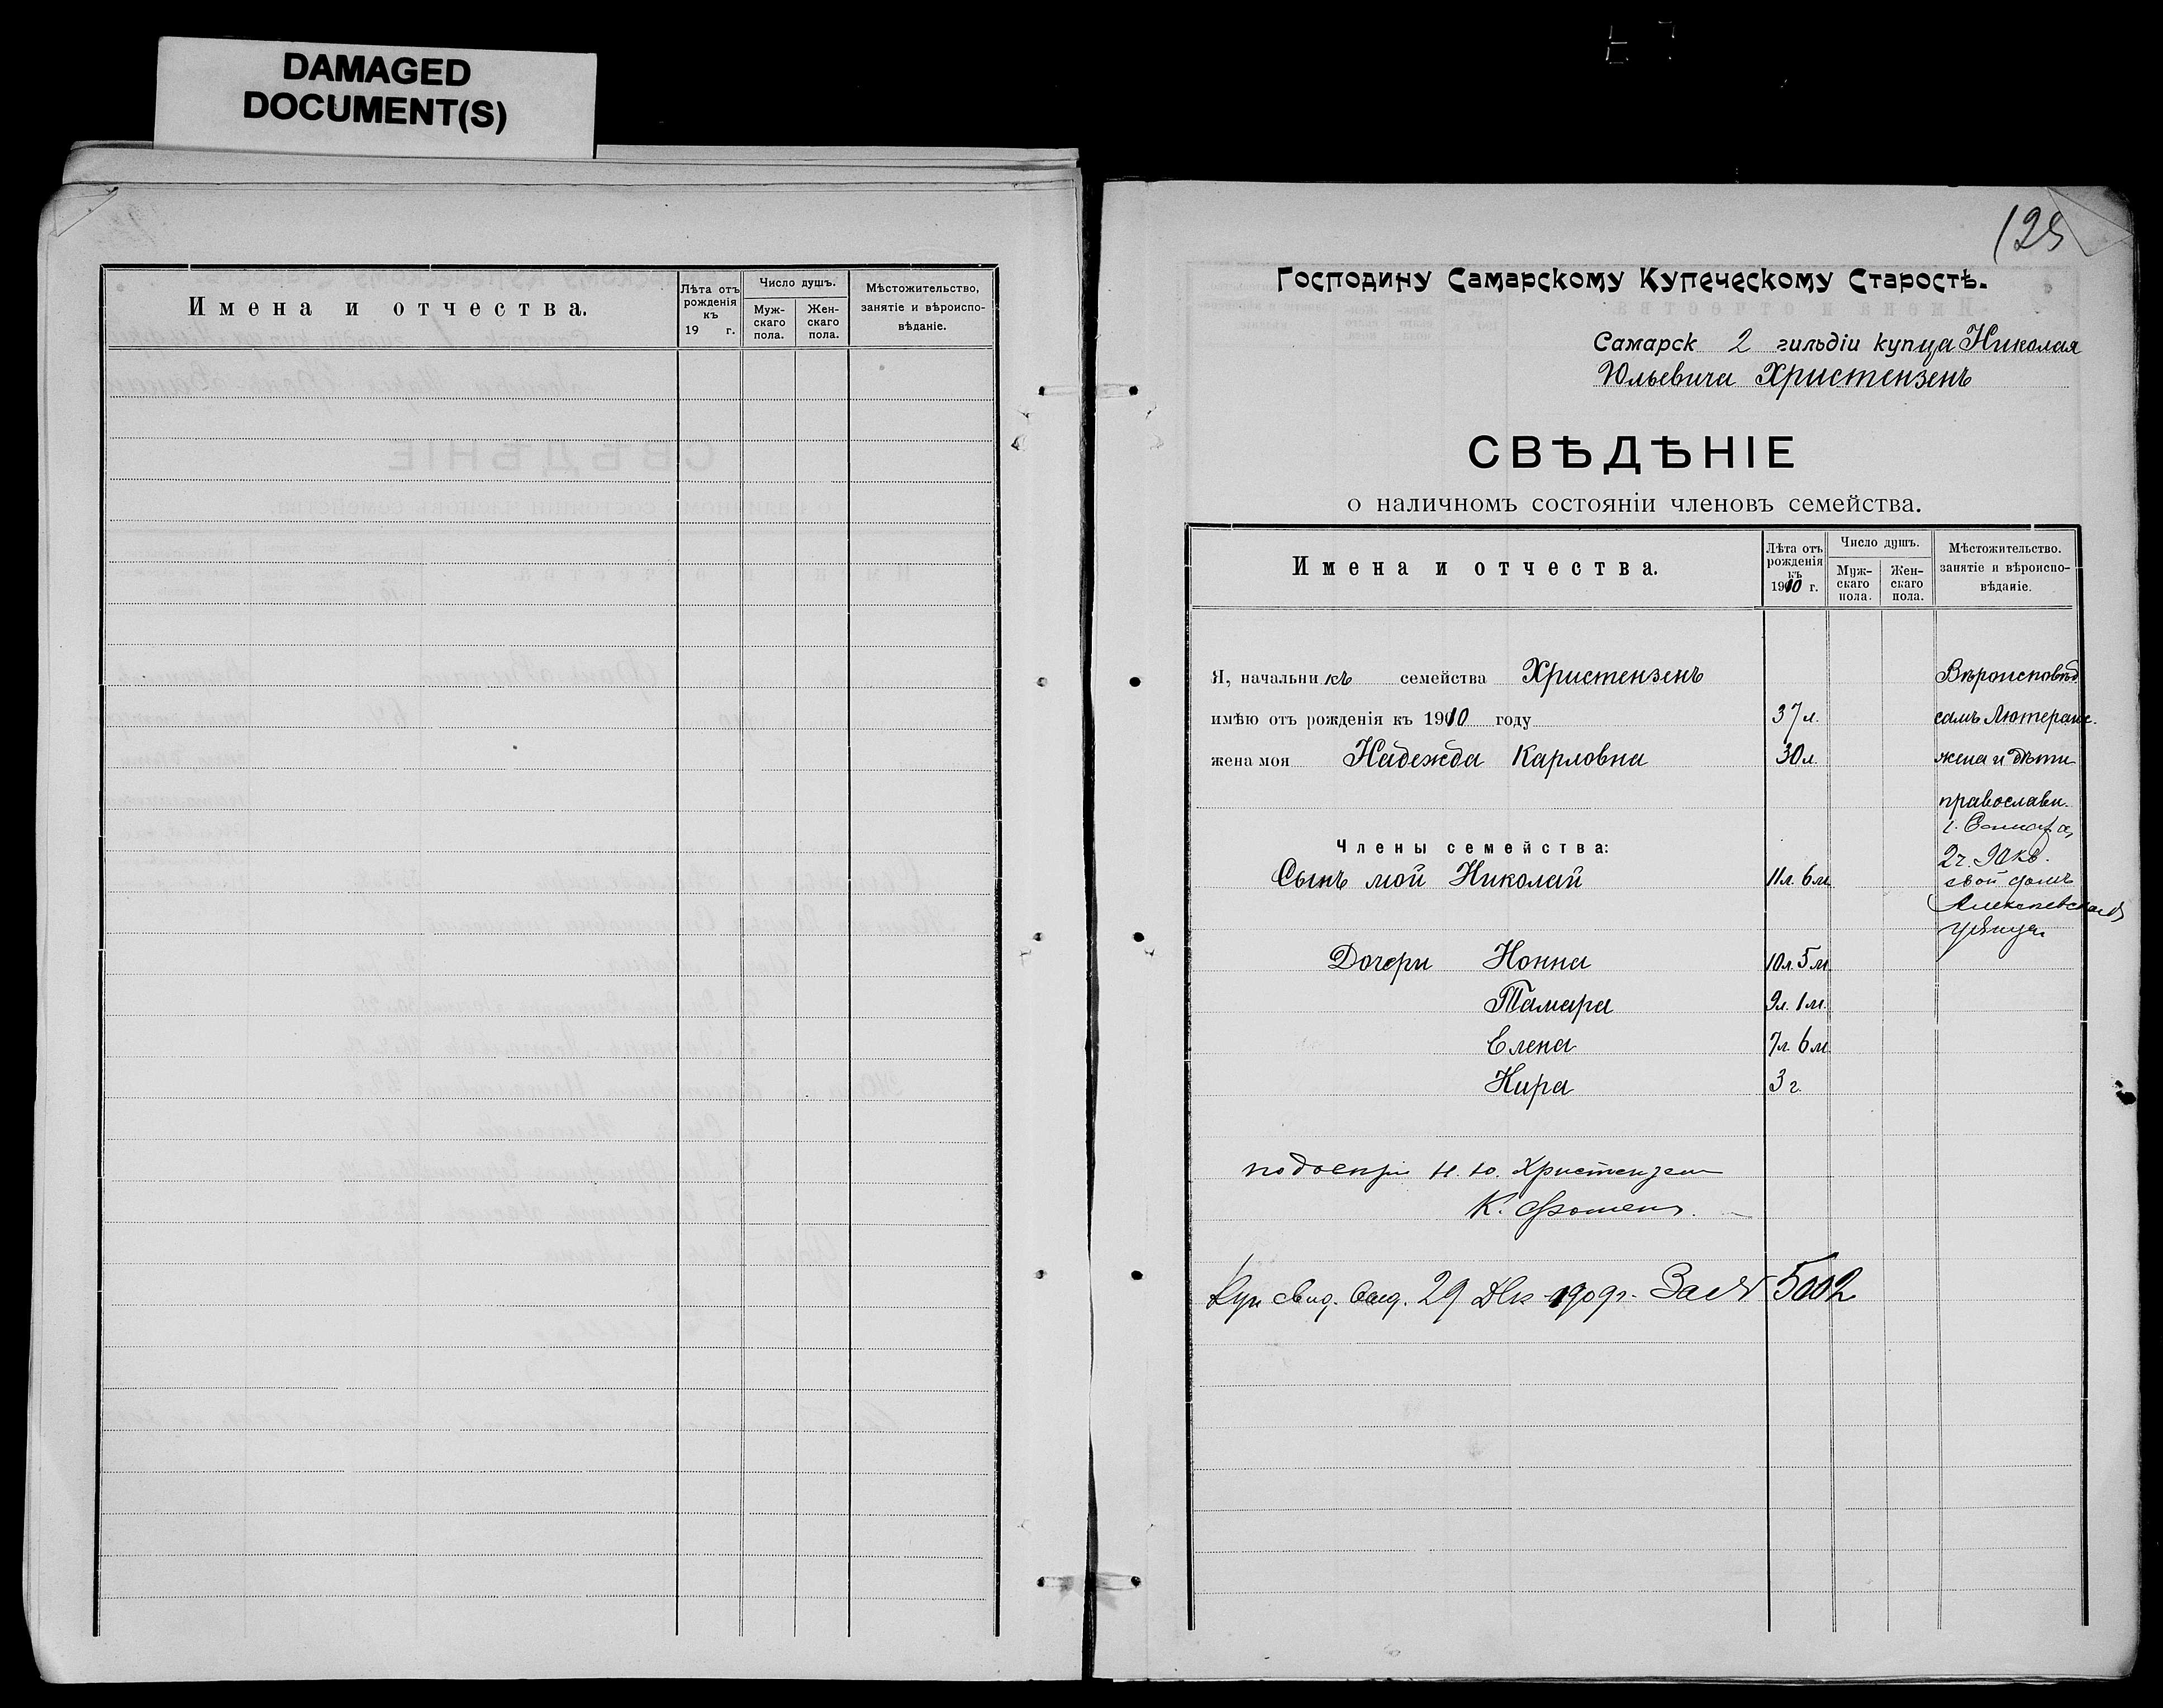 DAMAGED
DOCUMENT(S)
Имена и отчества.
Лѣта отъ рожденія къ 19 г.
Число душъ.
Муж-скаго пола.
Жен-скаго пола.
Мѣстожительство, занятіе и вѣроиспо-вѣданіе.
125
Господину Самарскому Купеческому Старостѣ.
Самарск 2 гильдіи купца Николая
Юльевича Христензенъ
СВѢДѢНІЕ
о наличномъ состояніи членовъ семейства.
Имена и отчества.
Лѣта отъ рожденія къ 1910 г.
Число душъ.
Муж-скаго пола.
Жен-скаго пола.
Мѣстожительство. занятіе и вѣроиспо-вѣданіе.
Я, начальникъ семейства Христензенъ Вѣроисповѣд
имѣю отъ рожденія къ 1910 году 37 л. самъ Лютеранс.
жена моя Надежда Карловна 30 л жена и дѣти
православн.
г. Самара,
Члены семейства:
2 ч. 90 кв.
Сынъ мой Николай 11 л. 6 м свой домъ
Алексѣевская
улица.
Дочери Нонна 10 л. 5 м
Тамара 9 л. 1 м.
Елена 7 л. 6 м
Кира 3 г.
Н. Ю. Христензен
К.
Куп свид. выд. 29 Дек 1909 г. За № 5002